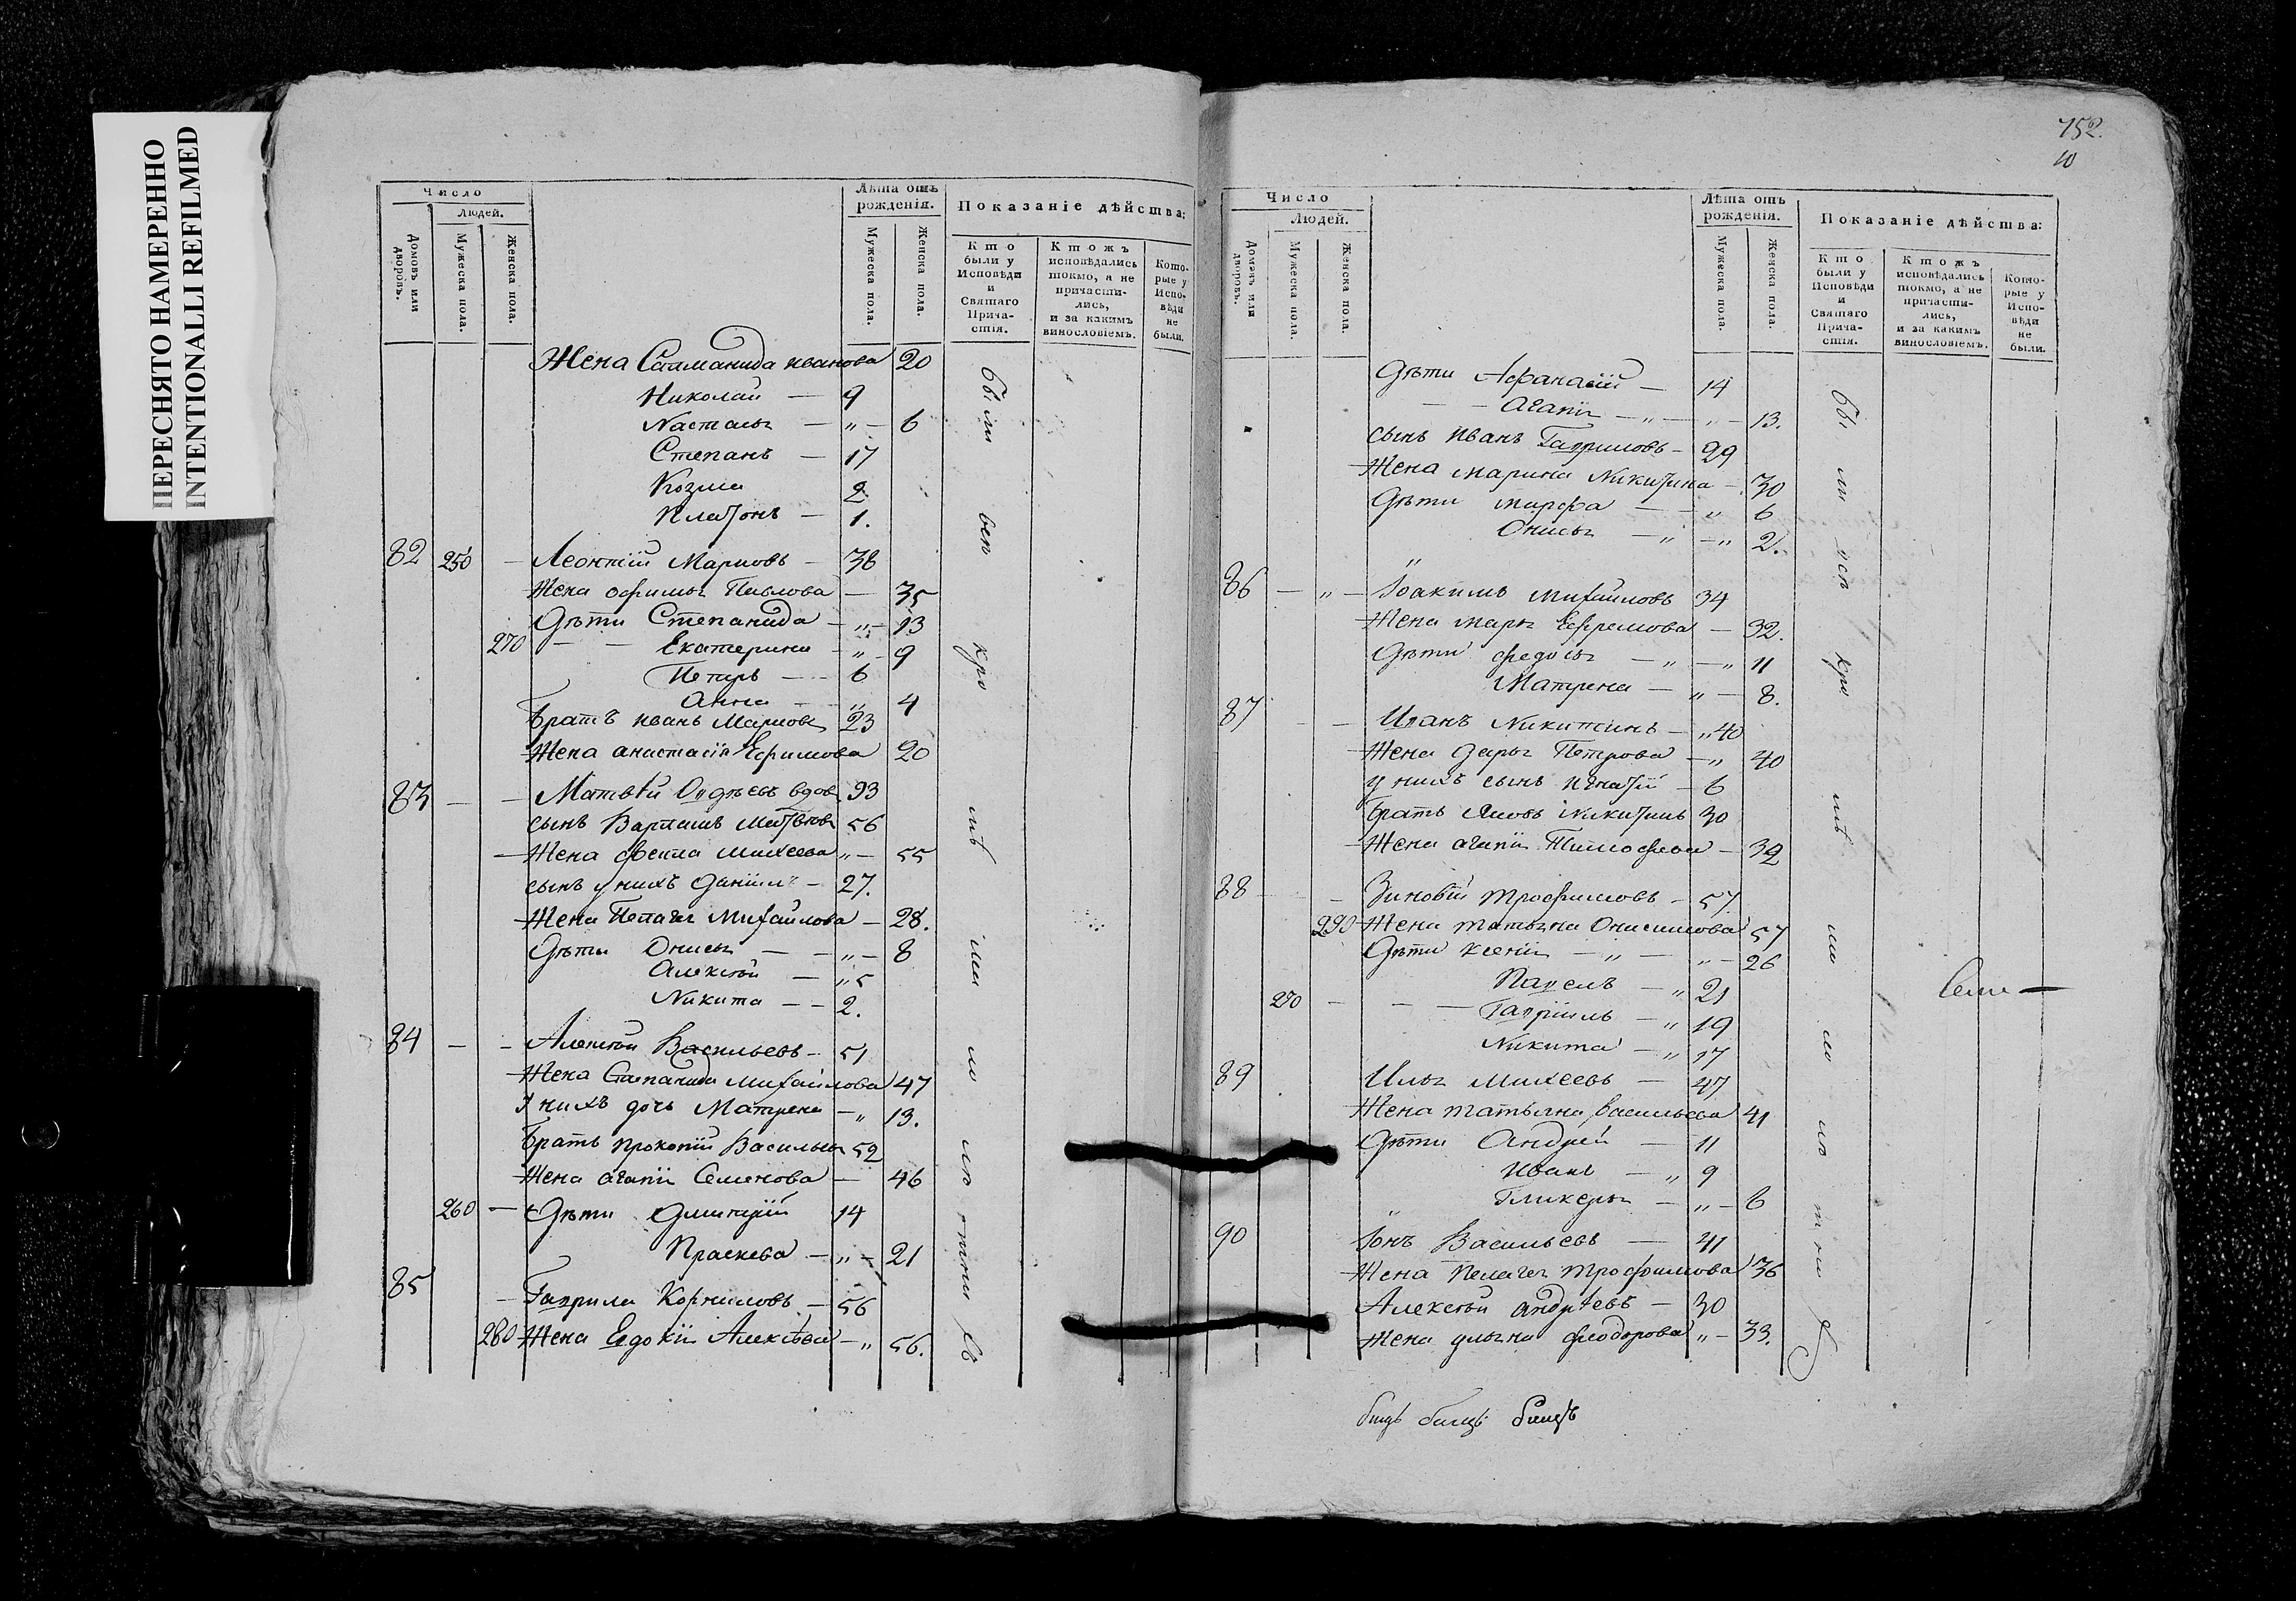 ПЕРЕСНЯТО НАМЕРЕННО
INTENTIONALLI REFILMED
Число
Людей.
Домовъ или дворовъ.
Мужеска пола.
Женска пола.
Лѣта отъ рожденія.
Мужеска пола.
Женска пола.
Показаніе дѣйства:
Кто были у Исповѣди и Святаго Прича-стія.
Ктожъ исповѣдались токмо, а не причасти-лись, и за какимъ винословіемъ.
Кото-рые у Испо-вѣди не были.
Жена Иванова 20
Николай — 9
Настасья — „ — 6
Степанъ — 17
Козма 2
Платонъ — 1.
82 250 — Леонтій Марковъ — 38
Жена Павлова — 35
Дѣти Степанида — „ — 13
270 — — Екатерина — „ — 9
Петръ — — 6
Анна — „ 4
Братъ Иванъ Марковъ 23
Жена Анастасія Ефимова 20
83 — — Матвѣй вдов 93
сынъ Матвѣевъ 56
— Жена Михеева „ — 55
сынъ у нихъ Даніилъ — 27.
Жена Пелагея Михайлова — 28.
Дѣти Онисья — — „ — 8
Алексѣй — „ 5
Никита — — 2.
84 — — Алексѣй Васильевъ — 51
Жена Степанида Михайлова 47
У нихъ дочь Матрена — „ 13.
Братъ Прокопій Васильевъ 52
Жена Агапія Семенова — 46
260 — Дѣти Дмитрій 14
Праскева — „ — 21
85 — Гаврила Корниловъ — 56
280 Жена Евдокія Алексѣева — „ 56.
были
752.
10
Число
Людей.
Домовъ или дворовъ.
Мужеска пола.
Женска пола.
Лѣта отъ рожденія.
Мужеска пола.
Женска пола.
Показаніе дѣйства:
Кто были у Исповѣди и Святаго Прича-стія.
Ктожъ исповѣдались токмо, а не причасти-лись, и за какимъ винословіемъ.
Кото-рые у Испо-вѣди не были.
Дѣти Афанасій — 14
— — Агапія — „ — „ — 13.
сынъ Иванъ Гавриловъ — 29
Жена Марина Никитина — 30
Дѣти Марфа — — „ 6
Онисья — „ — „ 2.
86 — „ — Іоакимъ Михайловъ 34
Жена Марья Ефремова — 32.
Дѣти Федосья — „ — „ 11
Матрена — „ — 8.
87 — — Иванъ Никитинъ — „ 40
Жена Дарья Петрова — „ 40
у нихъ сынъ Игнатій — 6
Братъ Яковъ Никитинъ 30
Жена Агапія Тимофеева — 32
88 — Зиновій Трофимовъ — 57
290 Жена Татьяна Онисимова 57
Дѣти Ксенія — „ — „ — 26
Павелъ — „ 21
270 — — Гавріилъ — „ 19
Никита — „ 17
89 Илья Михеевъ — 47
Жена Татьяна Васильева 41
Дѣти Андрей — 11
Иванъ — „ 9
Гликерья — „ — 6
90 Іонъ Васильевъ — 41
Жена Пелагея Трофимова 36
Алексѣй Андреевъ — 30
Жена Ульяна Феодорова „ — 33.
были